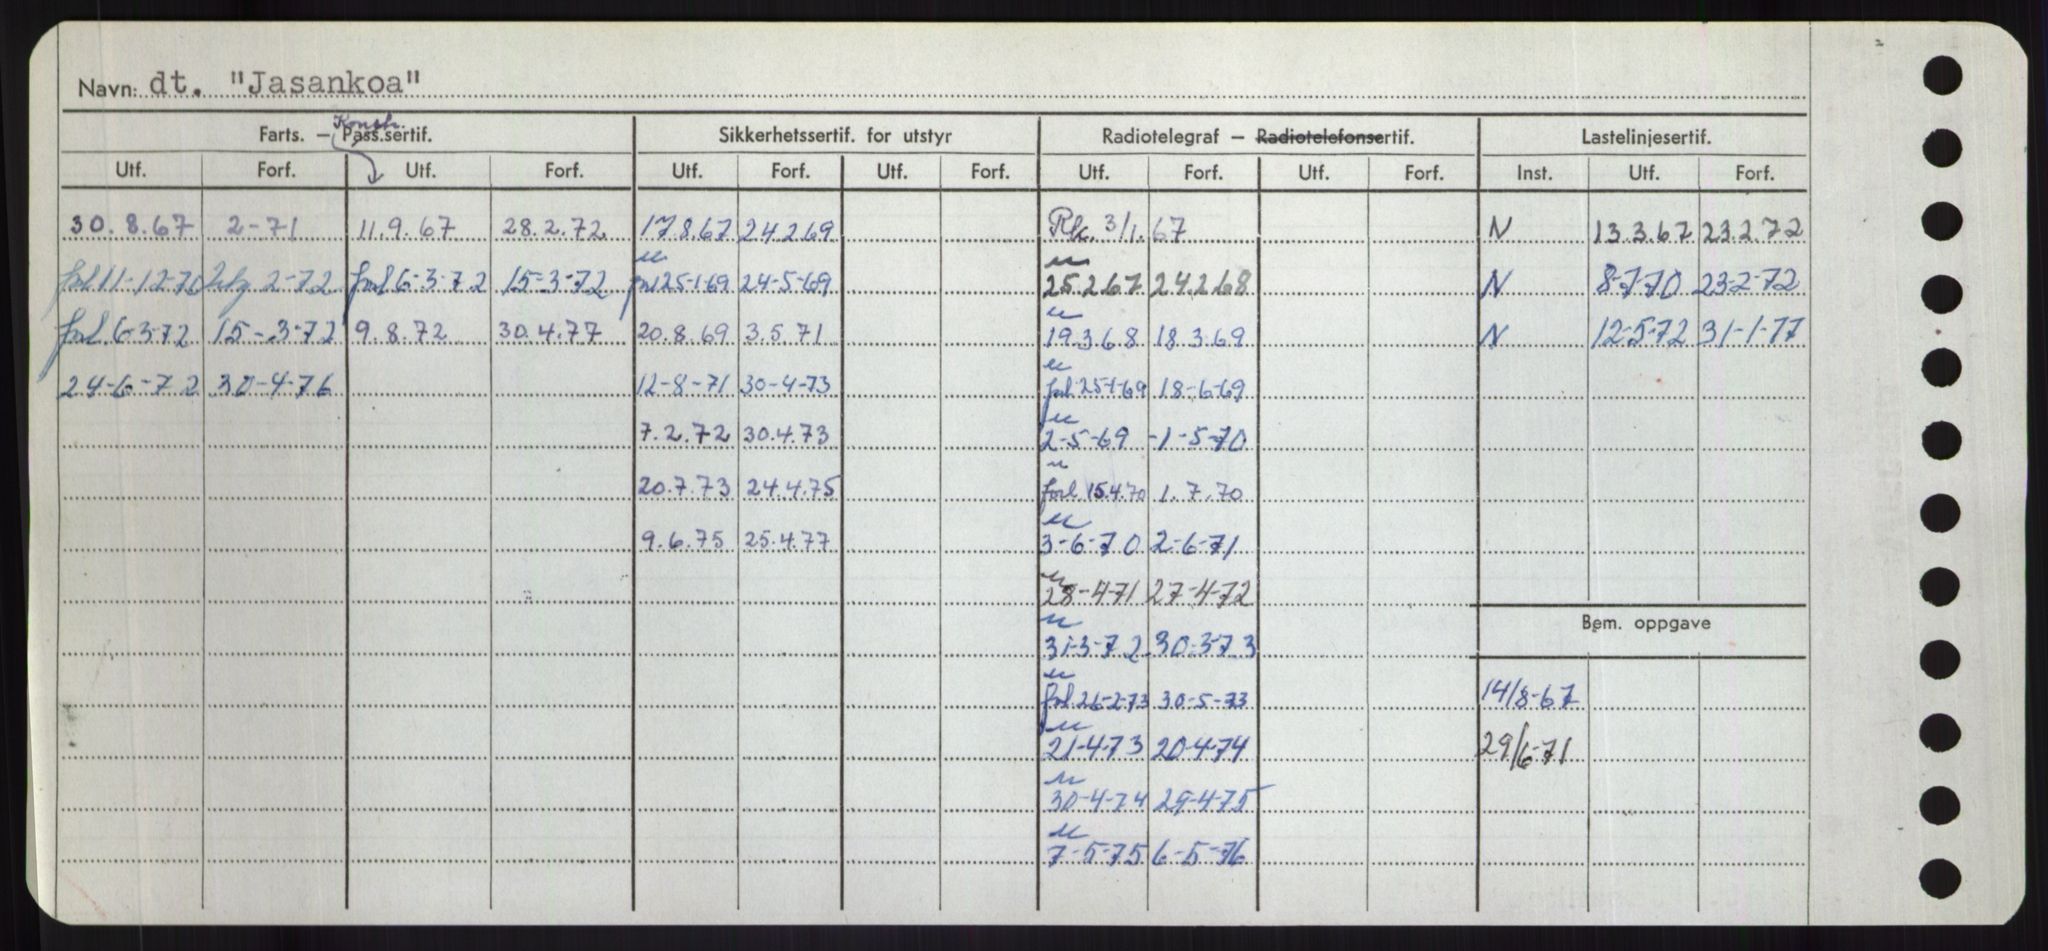 Navn: dt. "Jasankoa"
Farts. — Pass.sertif. Konstr. Sikkerhetssertif. for utstyr Radiotelegraf — Radiotelefonsertif. Lastelinjesertif.
Utf. Forf. Utf. Forf. Utf. Forf. Utf. Forf. Utf. Forf. Utf. Forf. Inst. Utf. Forf.
30.8.67 2-71 11.9.67 28.2.72 17.8.67 24.2.69 3/1.67 N 13.3.67 23.2.72
forl 11-12-70 2-72 forl 6-3-72 15-3-72 forl 25-1-69 24-5-69 25.2.67 24.2.68 N 8-7-70 23-2-72
forl 6-3-72 15-3-72 9.8.72 30.4.77 20.8.69 3.5.71 19.3.68 18.3.69 N 12-5-72 31-1-77
24-6-72 30-4-76 12-8-71 30-4-73 forl 25-1-69 18-6-69
7.2.72 30.4.73 2-5-69 -1-5-70
20.7.73 24.4.75 forl 15.4.70 1.7.70
9.6.75 25.4.77 3-6-70 2-6-71
28-4-71 27-4-72
Bem. oppgave
31-3-72 30-3-73
forl 26-2-73 30-5-73 14/8-67
21-4-73 20-4-74 29/6-71
30-4-74 29-4-75
7-5-75 6-5-76